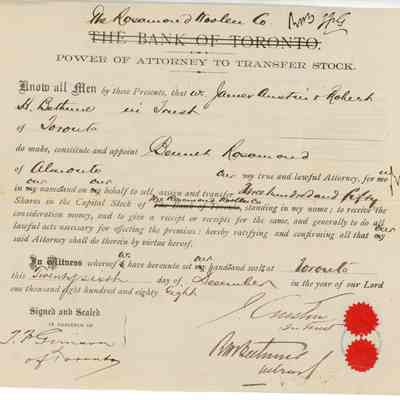 The Rosamond Woolen Co
THE BANK OF TORONTO.
POWER OF ATTORNEY TO TRANSFER STOCK.
Know all Men by these Presents, that we James Austin & Robert
H. Bethune in Trust
of Toronto
do make, constitute and appoint Bennet Rosamond
of Almonte our my true and lawful Attorney, for me us
in my our name and on my our behalf to sell, assign and transfer Three hundred and fifty
Shares in the Capital Stock of The Rosamond Woolen Co The Bank of Toronto, standing in my name; to receive the
consideration money, and to give a receipt or receipts for the same, and generally to do all
lawful acts necessary for effecting the premises; hereby ratifying and confirming all that my our
said Attorney shall do therein by virtue hereof.
In Witness whereof I we have hereunto set my our hand and seal at Toronto
this Twenty sixth day of December in the year of our Lord
one thousand eight hundred and eighty Eight
Signed and Sealed
IN PRESENCE OF
of Toronto
J Austin
In Trust
R H Bethune
in trust